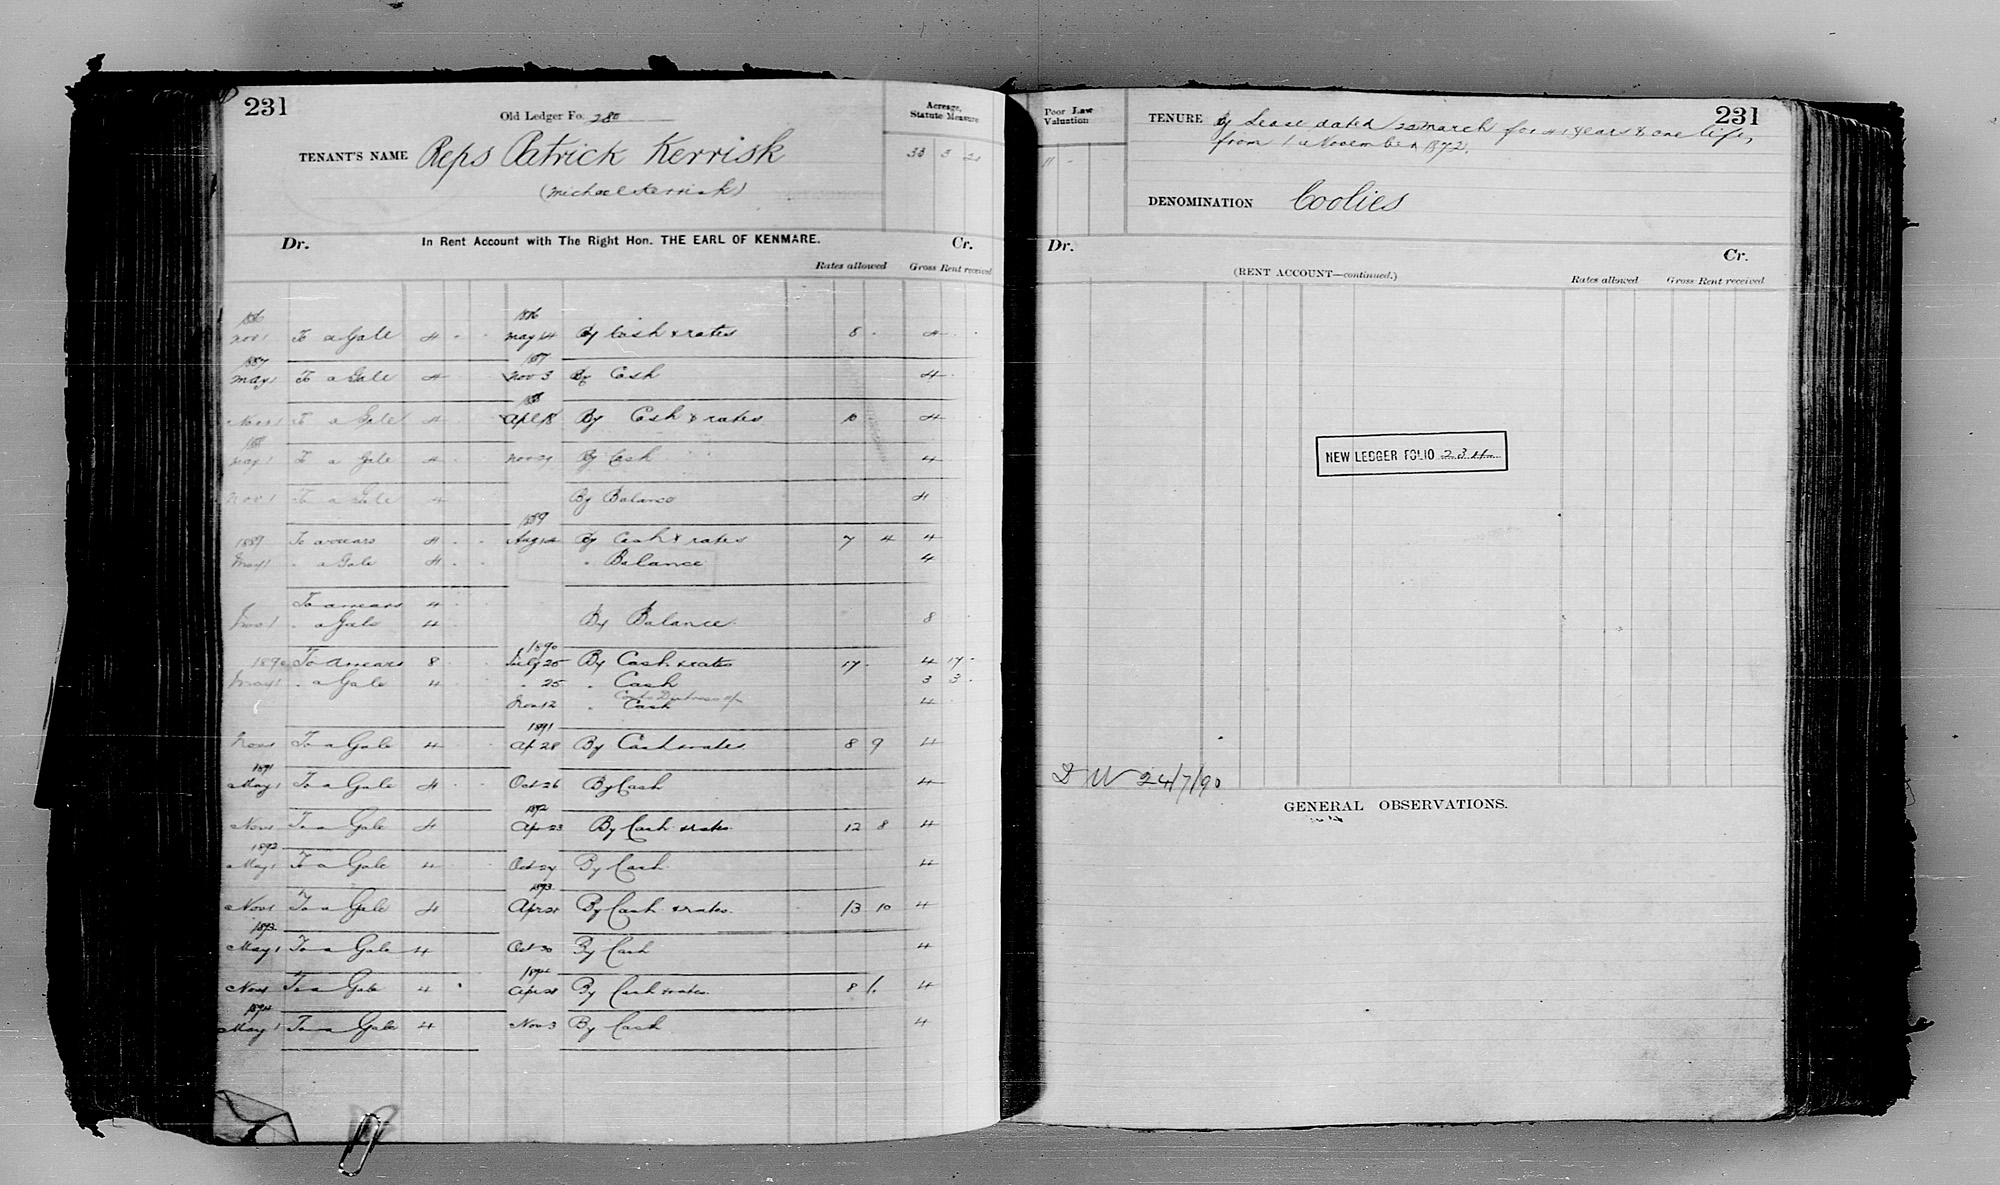 231
Old Ledger Fo. 280
Acreage, Statute Measure
TENANT'S NAME Reps Patrick Kerrisk
(Michael Kerrisk)
Dr. In Rent Account with The Right Hon. THE EARL OF KENMARE. Cr.
Rates allowed Gross Rent received
1886 1886
Nov 1 To a Gale 4 May 14 By Cash & rates 8 4
1887 1887
May 1 To a Gale 4 Nov 3 By Cash 4
1888
Nov 1 To a Gale 4 Apl 18 By Cash & rates 10 4
1888
May 1 To a Gale 4 Nov By Cash 4
Nov 1 To a Gale 4 By Balance 4
1889
1889 To arrears 4 Aug 14 By Cash & rates 7 4 4
May 1 " a Gale 4 " Balance 4
To arrears 4
Nov 1 " a Gale 4 By Balance 8
1890
1890 To arrears 8 July 25 By Cash & rates 17 4 17
May 1 " a Gale 4 " 25 " Cash 3 3
Costs Distress
Nov 12 " Cash 4
1891
Nov 1 To a Gale 4 Ap 28 By Cash & rates 8 9 4
1891
May 1 To a Gale 4 Oct 26 By Cash 4
1892
Nov 1 To a Gale 4 Apr 23 By Cash & rates 12 8 4
1892
May 1 To a Gale 4 Oct By Cash 4
1893
Nov 1 To a Gale 4 Apr 21 By Cash & rates 13 10 4
1893
May 1 To a Gale 4 Oct 30 By Cash 4
1894
Nov 1 To a Gale 4 Apr 21 By Cash & rates 8 1 4
1894
May 1 To a Gale 4 Nov 3 By Cash 4
Poor Law Valuation
11 -
231
TENURE By Lease dated 22 March for 41 years & one life,
from 1st November 1872.
DENOMINATION Coolies
Dr. Cr.
(RENT ACCOUNT—continued.)
Rates allowed Gross Rent received
NEW LEDGER FOLIO 234
D W 24/7/90
GENERAL OBSERVATIONS.